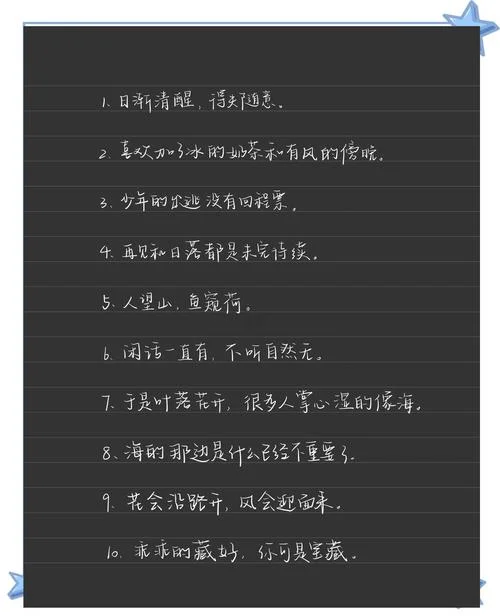 1. 日渐清醒，得失随意。
2. 喜欢加了冰的奶茶和有风的傍晚。
3. 少年的出逃没有回程票。
4. 再见和日落都是未完待续。
5. 人望山，鱼窥荷。
6. 闲话一直有，不听自然无。
7. 于是叶落花开，很多人掌心湿的像海。
8. 海的那边是什么已经不重要了。
9. 花会沿路开，风会迎面来。
10. 乖乖的藏好，你可是宝藏。